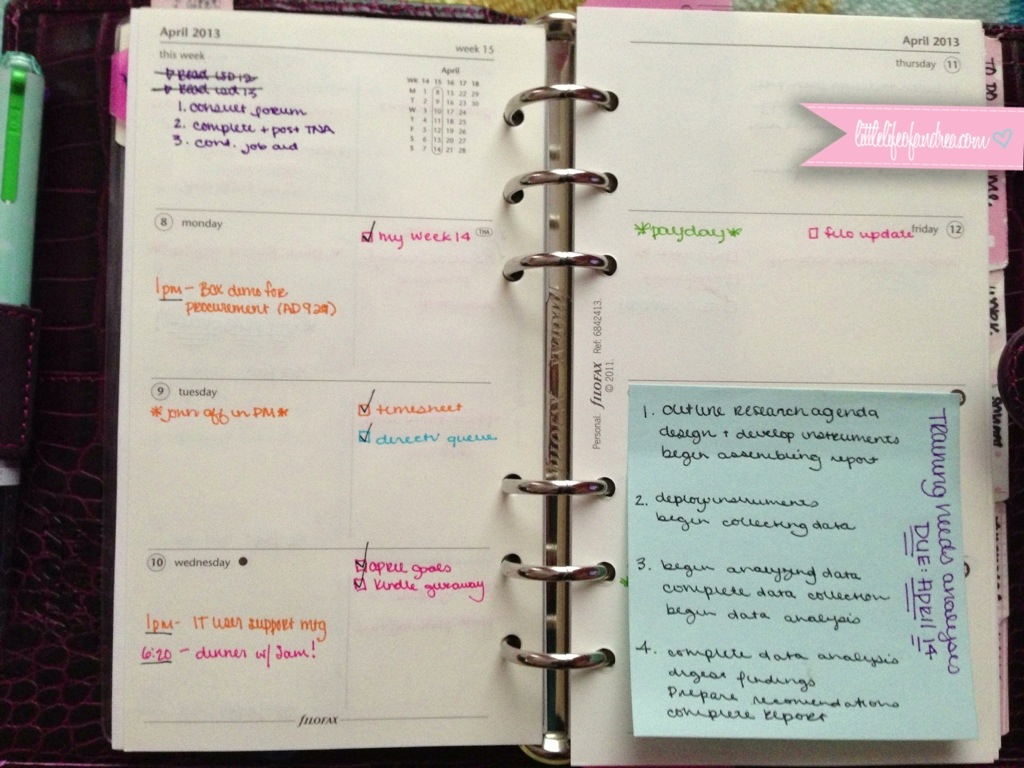 April 2013
week 15
this week
Read LSD 12
Read LSD 13
1. consult forum
2. complete + post TNA
3. cont. job aid
April
WK 14 15 16 17 18
M 1 8 15 22 29
T 2 9 16 23 30
W 3 10 17 24
T 4 11 18 25
F 5 12 19 26
S 6 13 20 27
S 7 14 21 28
8 monday
my week 14
1pm - Box demo for
procurement (AD92
9 tuesday
*john off in PM*
timesheet
directv queue
10 wednesday
april goals
kindle giveaway
1pm- IT user support mtg
6:20 - dinner w/ Jam!
FILOFAX
April 2013
thursday 11
TO DO
littlelifeofandrea.com
*payday*
filo update
friday 12
Personal. FILOFAX Ref: 6842413.
© 2011.
1. outline research agenda
design + develop instruments
begin assembling report
2. deploy instruments
begin collecting data
3. begin analyzing data
complete data collection
begin data analysis
4. complete data analysis
digest findings
Prepare recomendations
complete report
Training needs analyses
DUE: April 14